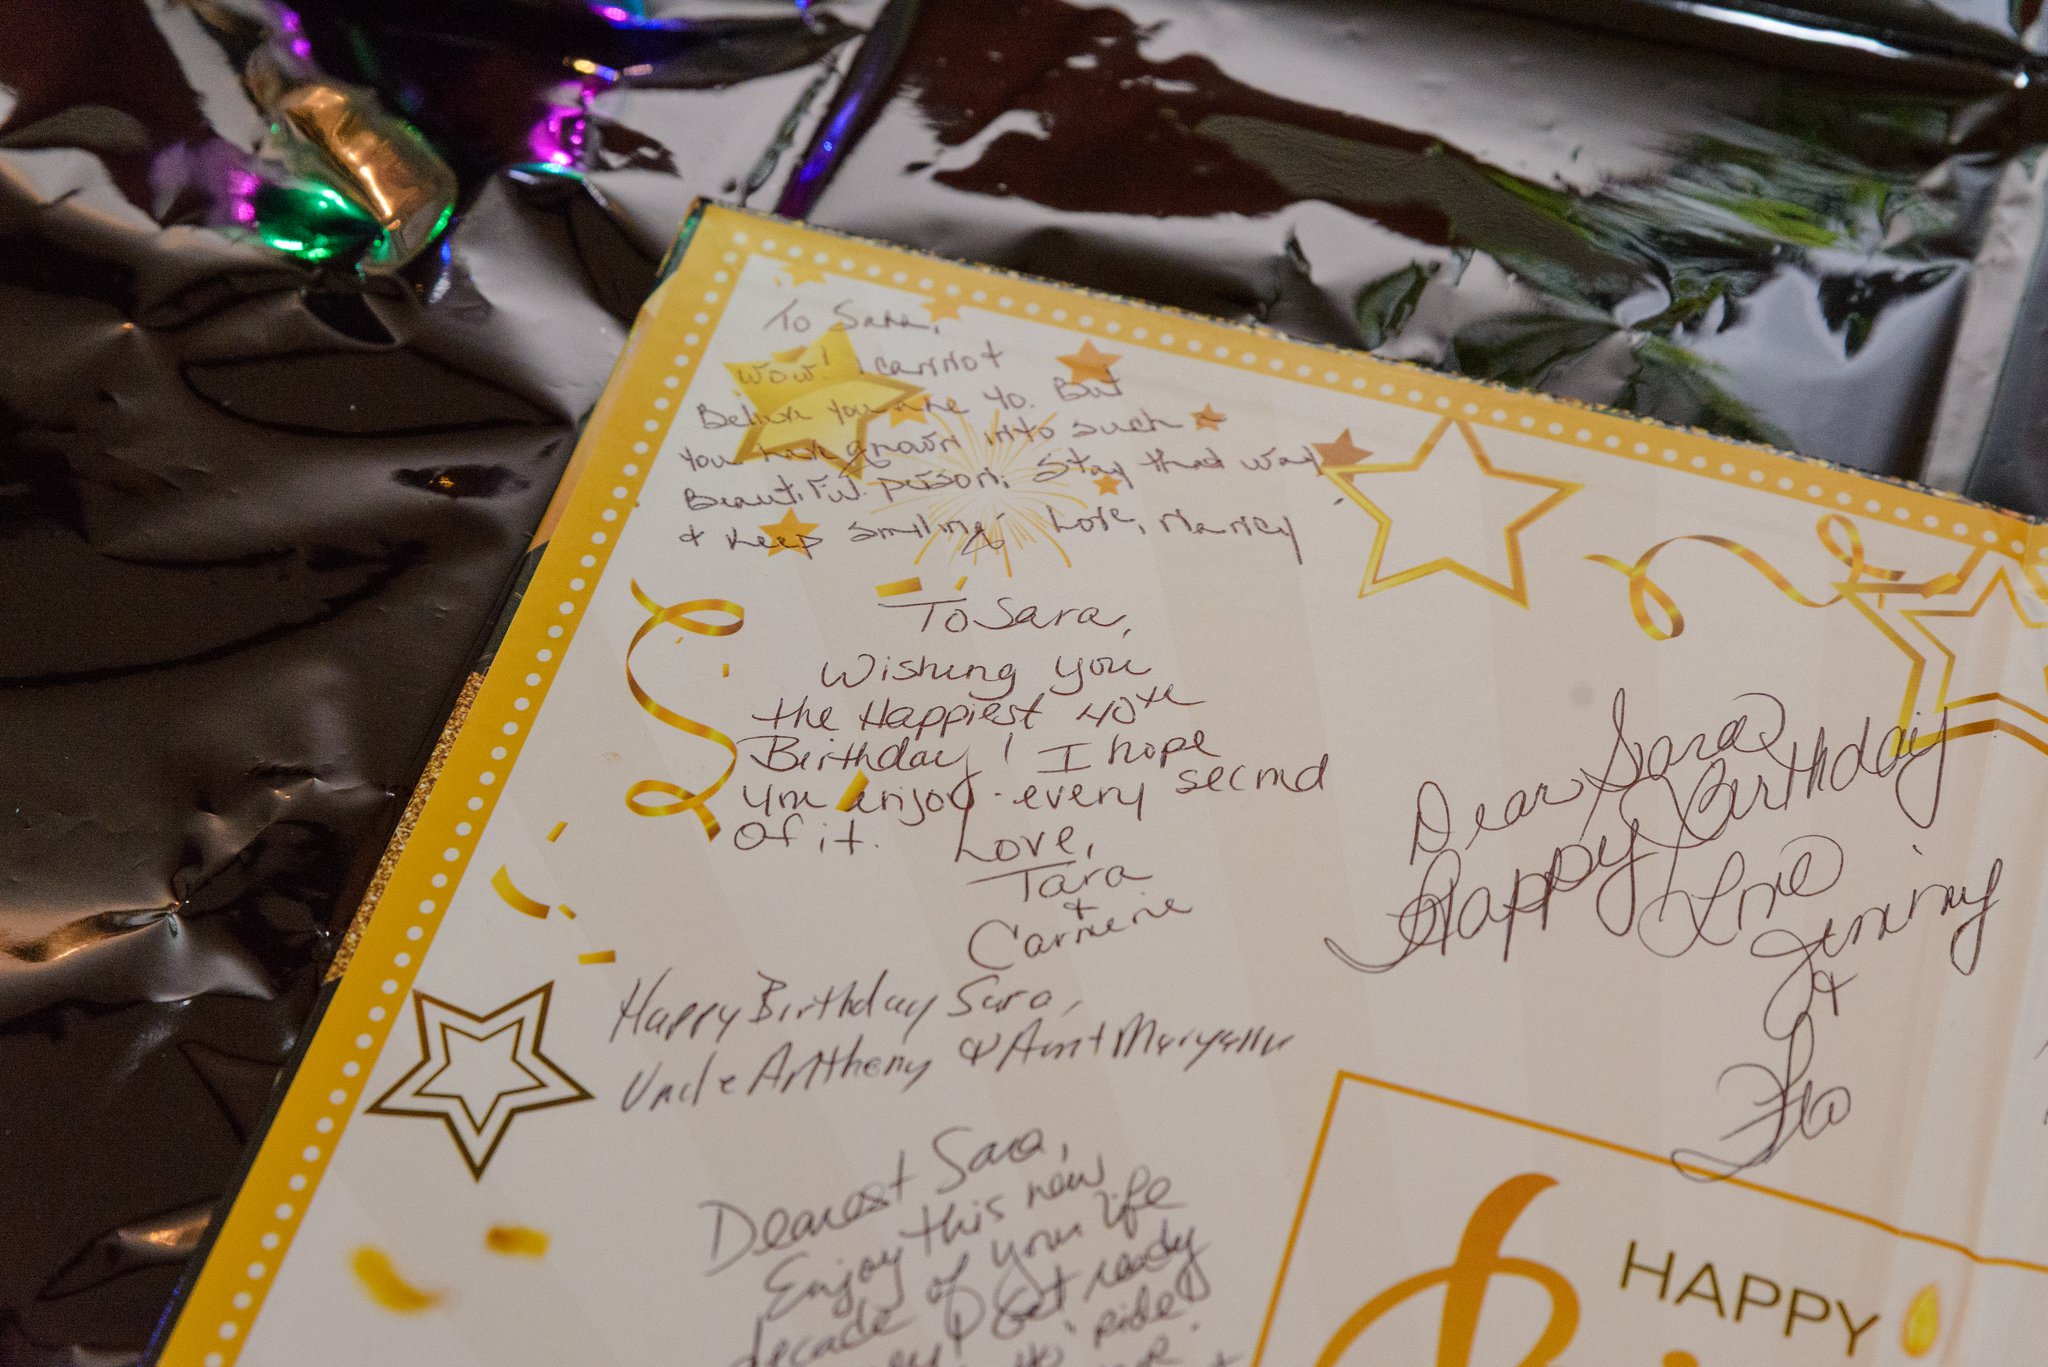 To Sara,
Wow! I cannot
Believe you are 40. But
you have grown into such a
Beautiful person. Stay that way
& keep smiling. Love, Nancy
To Sara,
Wishing you
the Happiest 40th
Birthday! I hope
you enjoy every second
of it. Love,
Tara
+
Carmine
Happy Birthday Sara,
Uncle Anthony & Aunt Maryann
Dear Sara
Happy Birthday
Love
Jimmy
+
Flo
Dearest Sara,
Enjoy this new
decade of your life
Get ready
ride
HAPPY